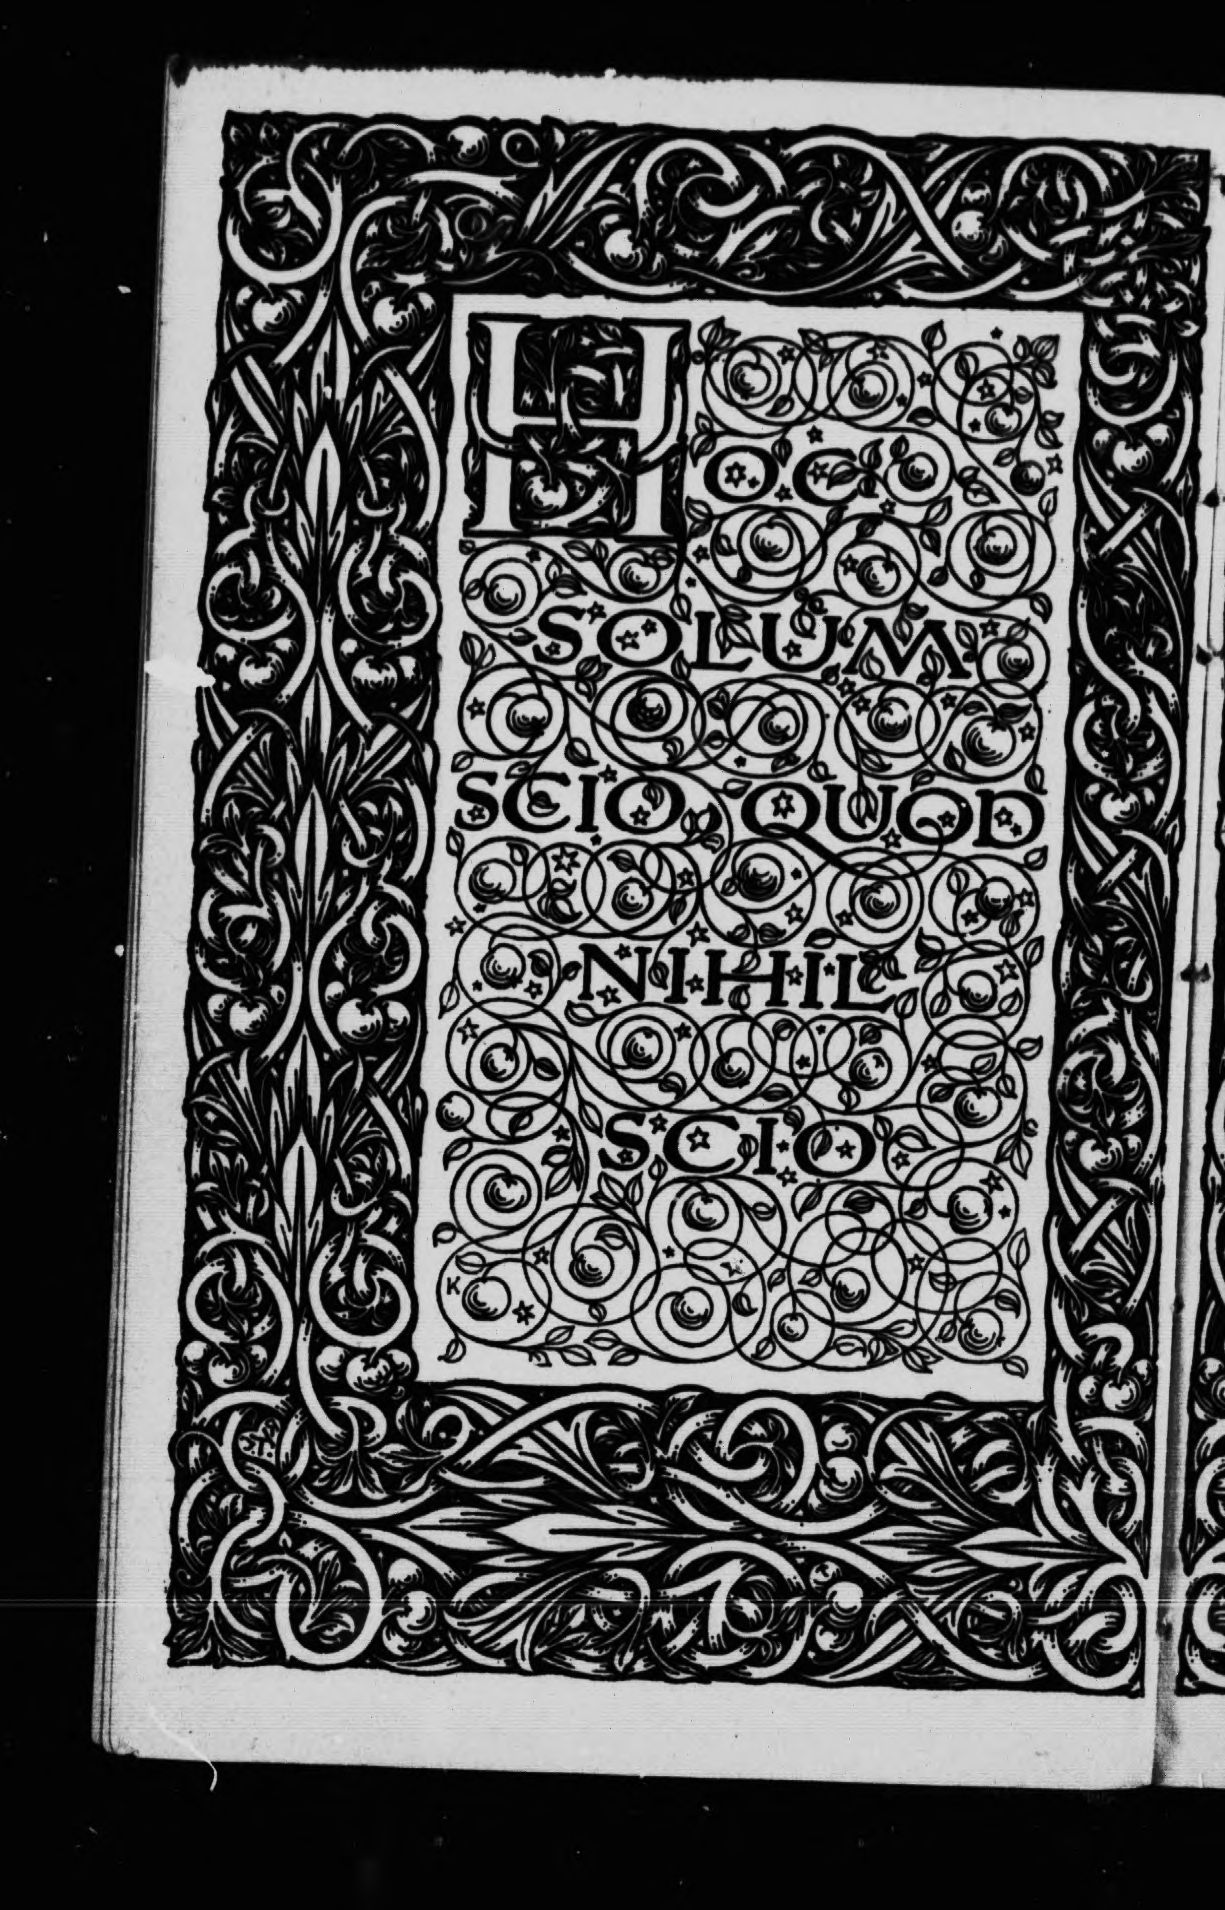 HOC
SOLUM
SCIO, QUOD
NIHIL
SCIO
K